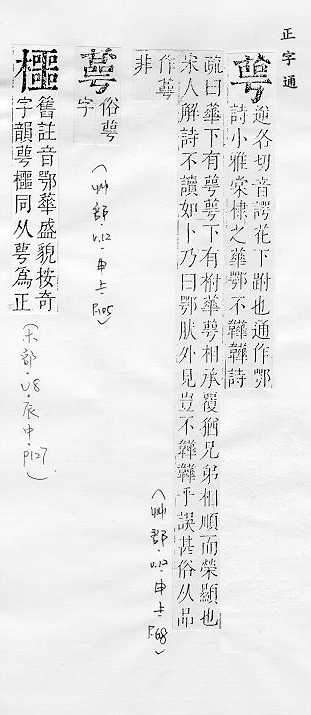 正字通
萼
逆各切音諤花下跗也通作鄂
詩小雅棠棣之華鄂不韡韡詩
疏曰華下有萼萼下有柎華萼相承覆猶兄弟相順而榮顯也
宋人解詩不讀如卜乃曰鄂肰外見豈不韡韡乎誤甚俗从咢
作萼
非
(艸部·v.12·申上·P.68)
俗萼
字
(艸部·v.12·申上·P.105)
櫮
舊註音鄂華盛貌按奇
字韻萼櫮同从萼為正
(木部·v8·辰中·P127)